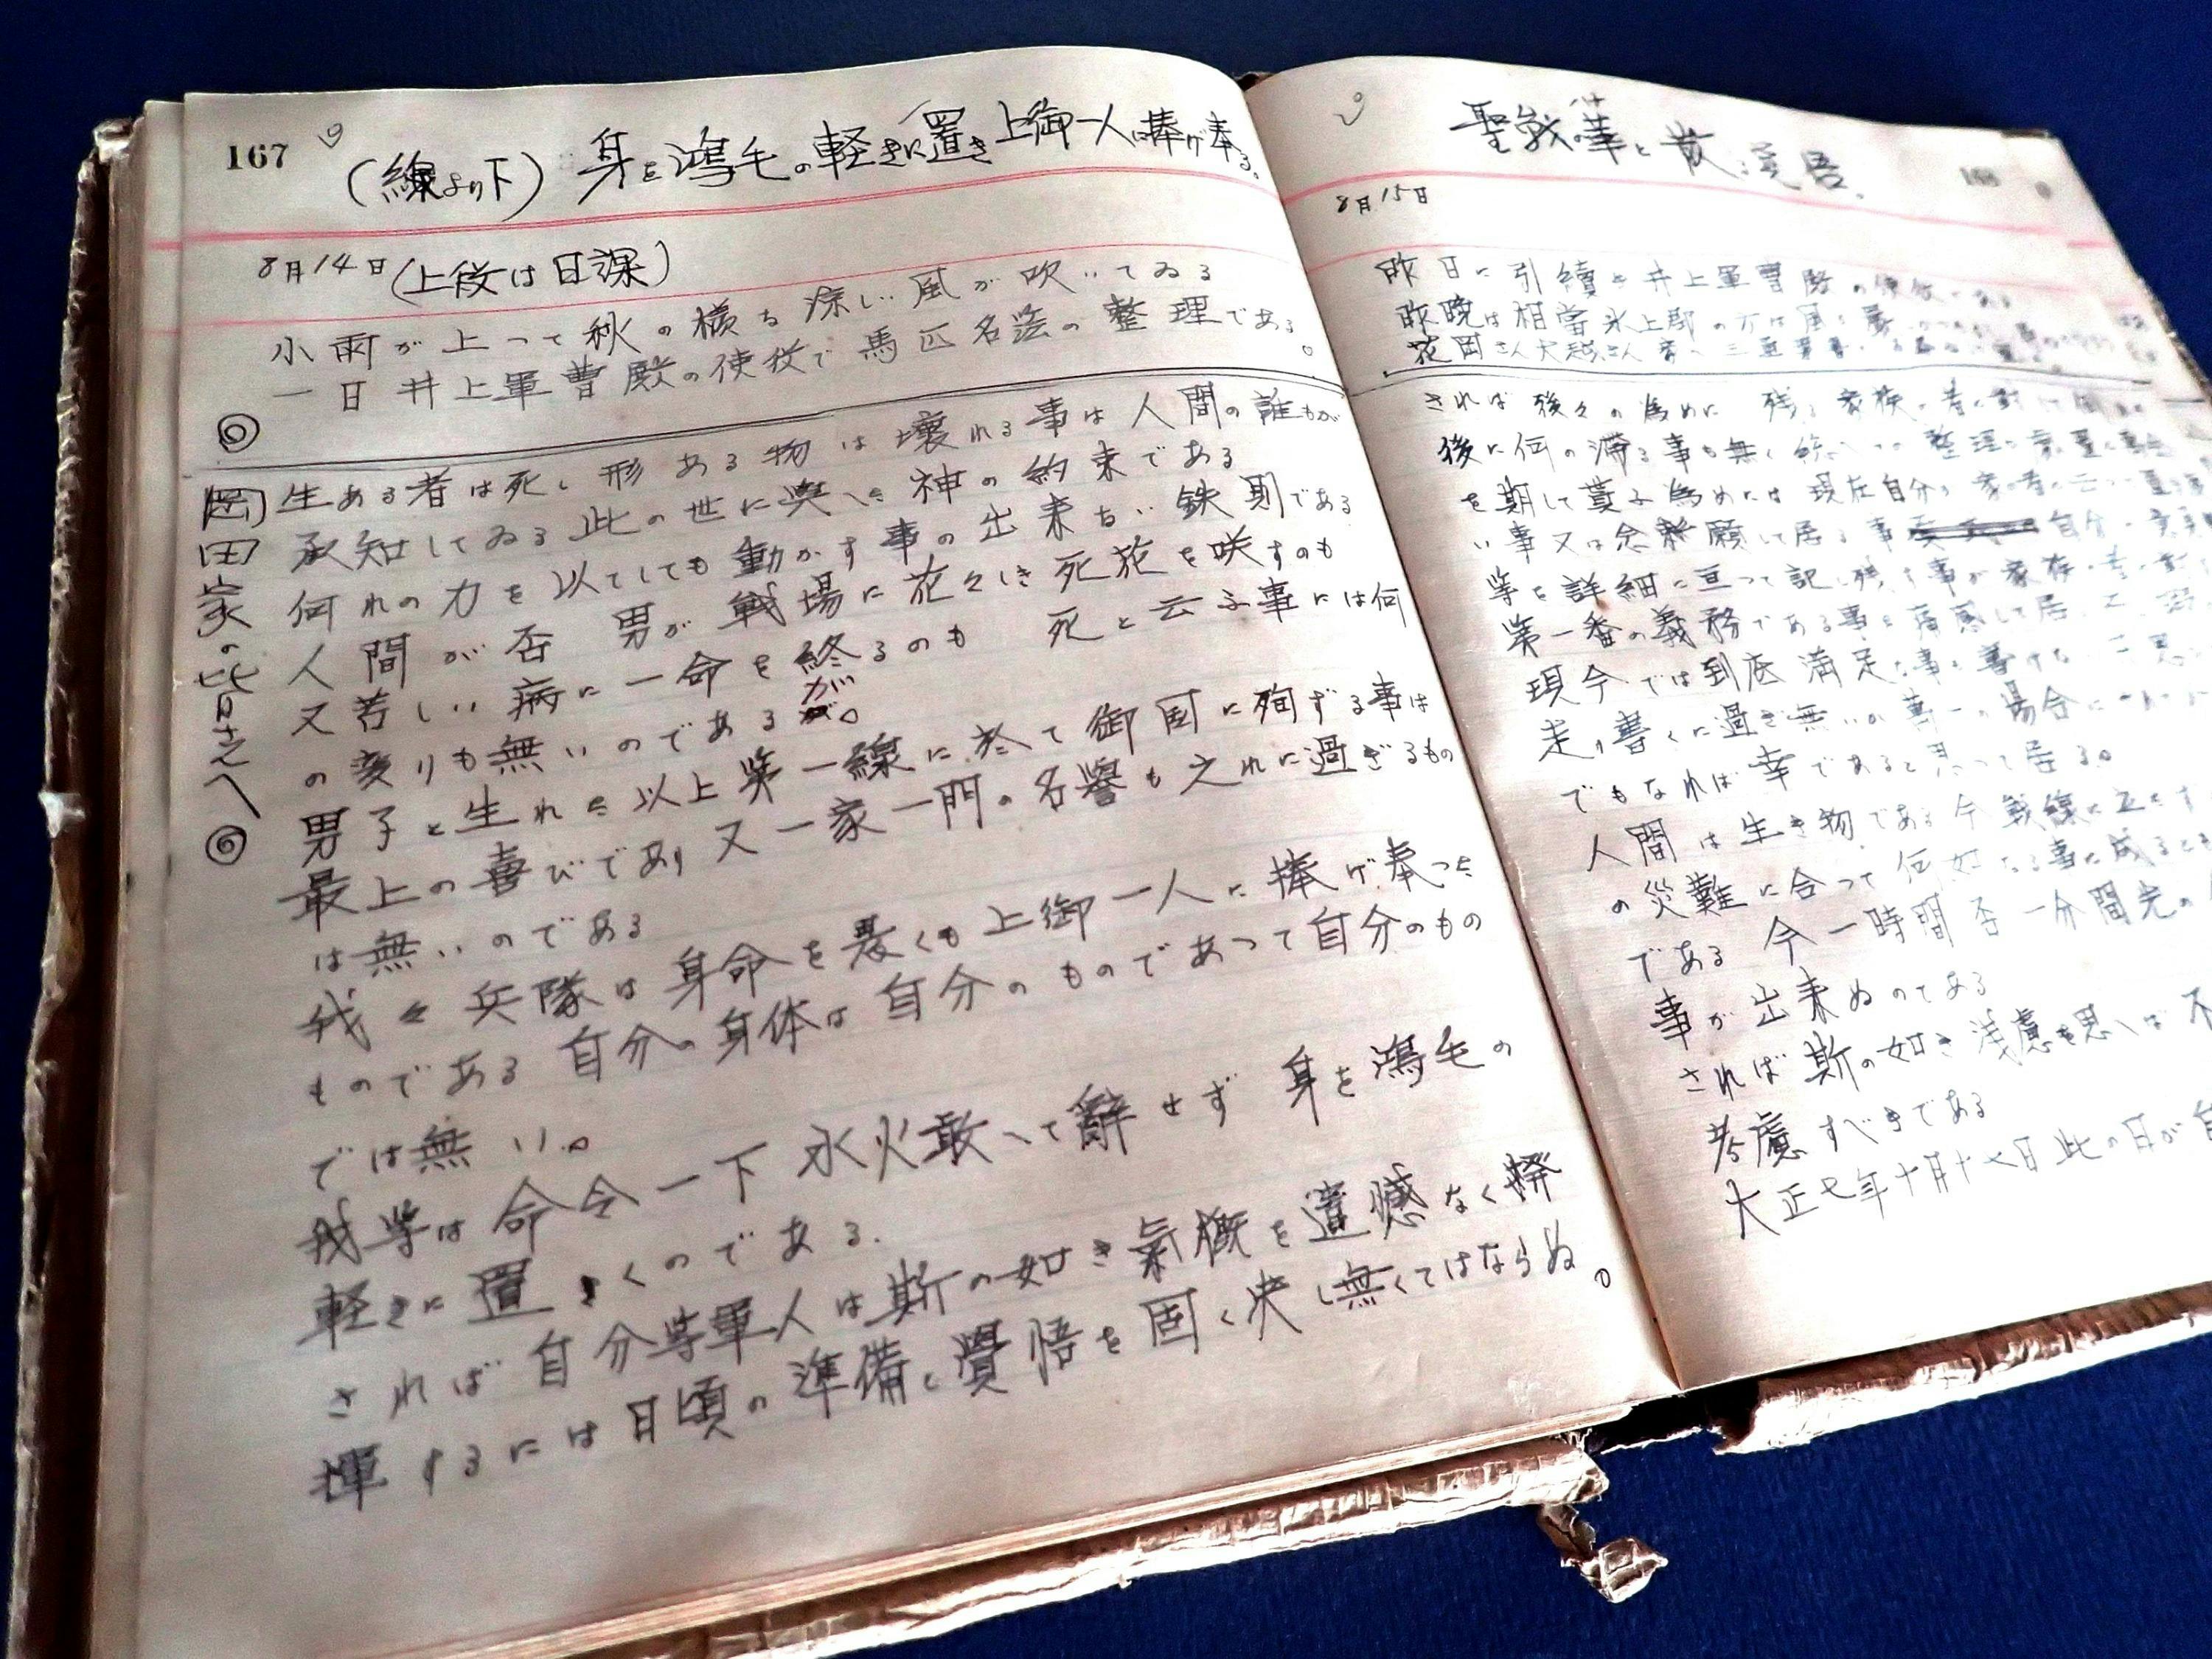 167
(線より下) 身を鴻毛の軽きに置き上御一人に捧げ奉る。
8月14日(上段は日課)
小雨が上って秋の様な涼しい風が吹いてゐる
一日井上軍曹殿の使役で馬匹名簿の整理である。
◎岡田家の皆さんへ◎
生ある者は死し形ある物は壊れる事は人間の誰もが
承知してゐる此の世に与へた神の約束である
何れの力を以てしても動かす事の出来ない鉄則である
人間が否 男が戦場に花々しき死花を咲すのも
又苦しい病に一命を終るのも 死と云ふ事には何
の変りも無いのであるが。
男子と生れた以上第一線に於て御国に殉ずる事は
最上の喜びであり又一家一門の名誉も之れに過ぎるもの
は無いのである
我々兵隊は身命を畏くも上御一人に捧げ奉った
ものである 自分の身体は自分のものであって自分のもの
では無い。
我等は命令一下 水火敢へて辞せず 身を鴻毛の
軽きに置くのである.
されば自分等軍人は斯の如き気概を遺憾なく発
揮するには日頃の準備と覚悟を固く決し無くてはならぬ。
聖戦の華と散る覚悟。
168
8月15日
昨日に引続き井上軍曹殿の使役である
昨晩は相当氷上郡の方は
花岡さん大
されば後々の為めに 残る家族の者に対して
後に何の滞る事も無く 整理
を期して貰ふ為めには現在自分の家の者に云
い事又は念願して居る事 自分
等を詳細に亘って記し残す事が家族の者に対
第一番の義務である事を痛感して居
現今では到底満足な事も書けない
走り書くに過ぎ無いが万一の場合に
でもなれば幸であると思って居る。
人間は生き物である今戦線に立
の災難に合って何如なる事に成るとも
である 今一時間 否 一分間先の
事が出来ぬのである
されば斯の如き浅慮を思へば不
考慮すべきである
大正七年十月十七日 此の日が自